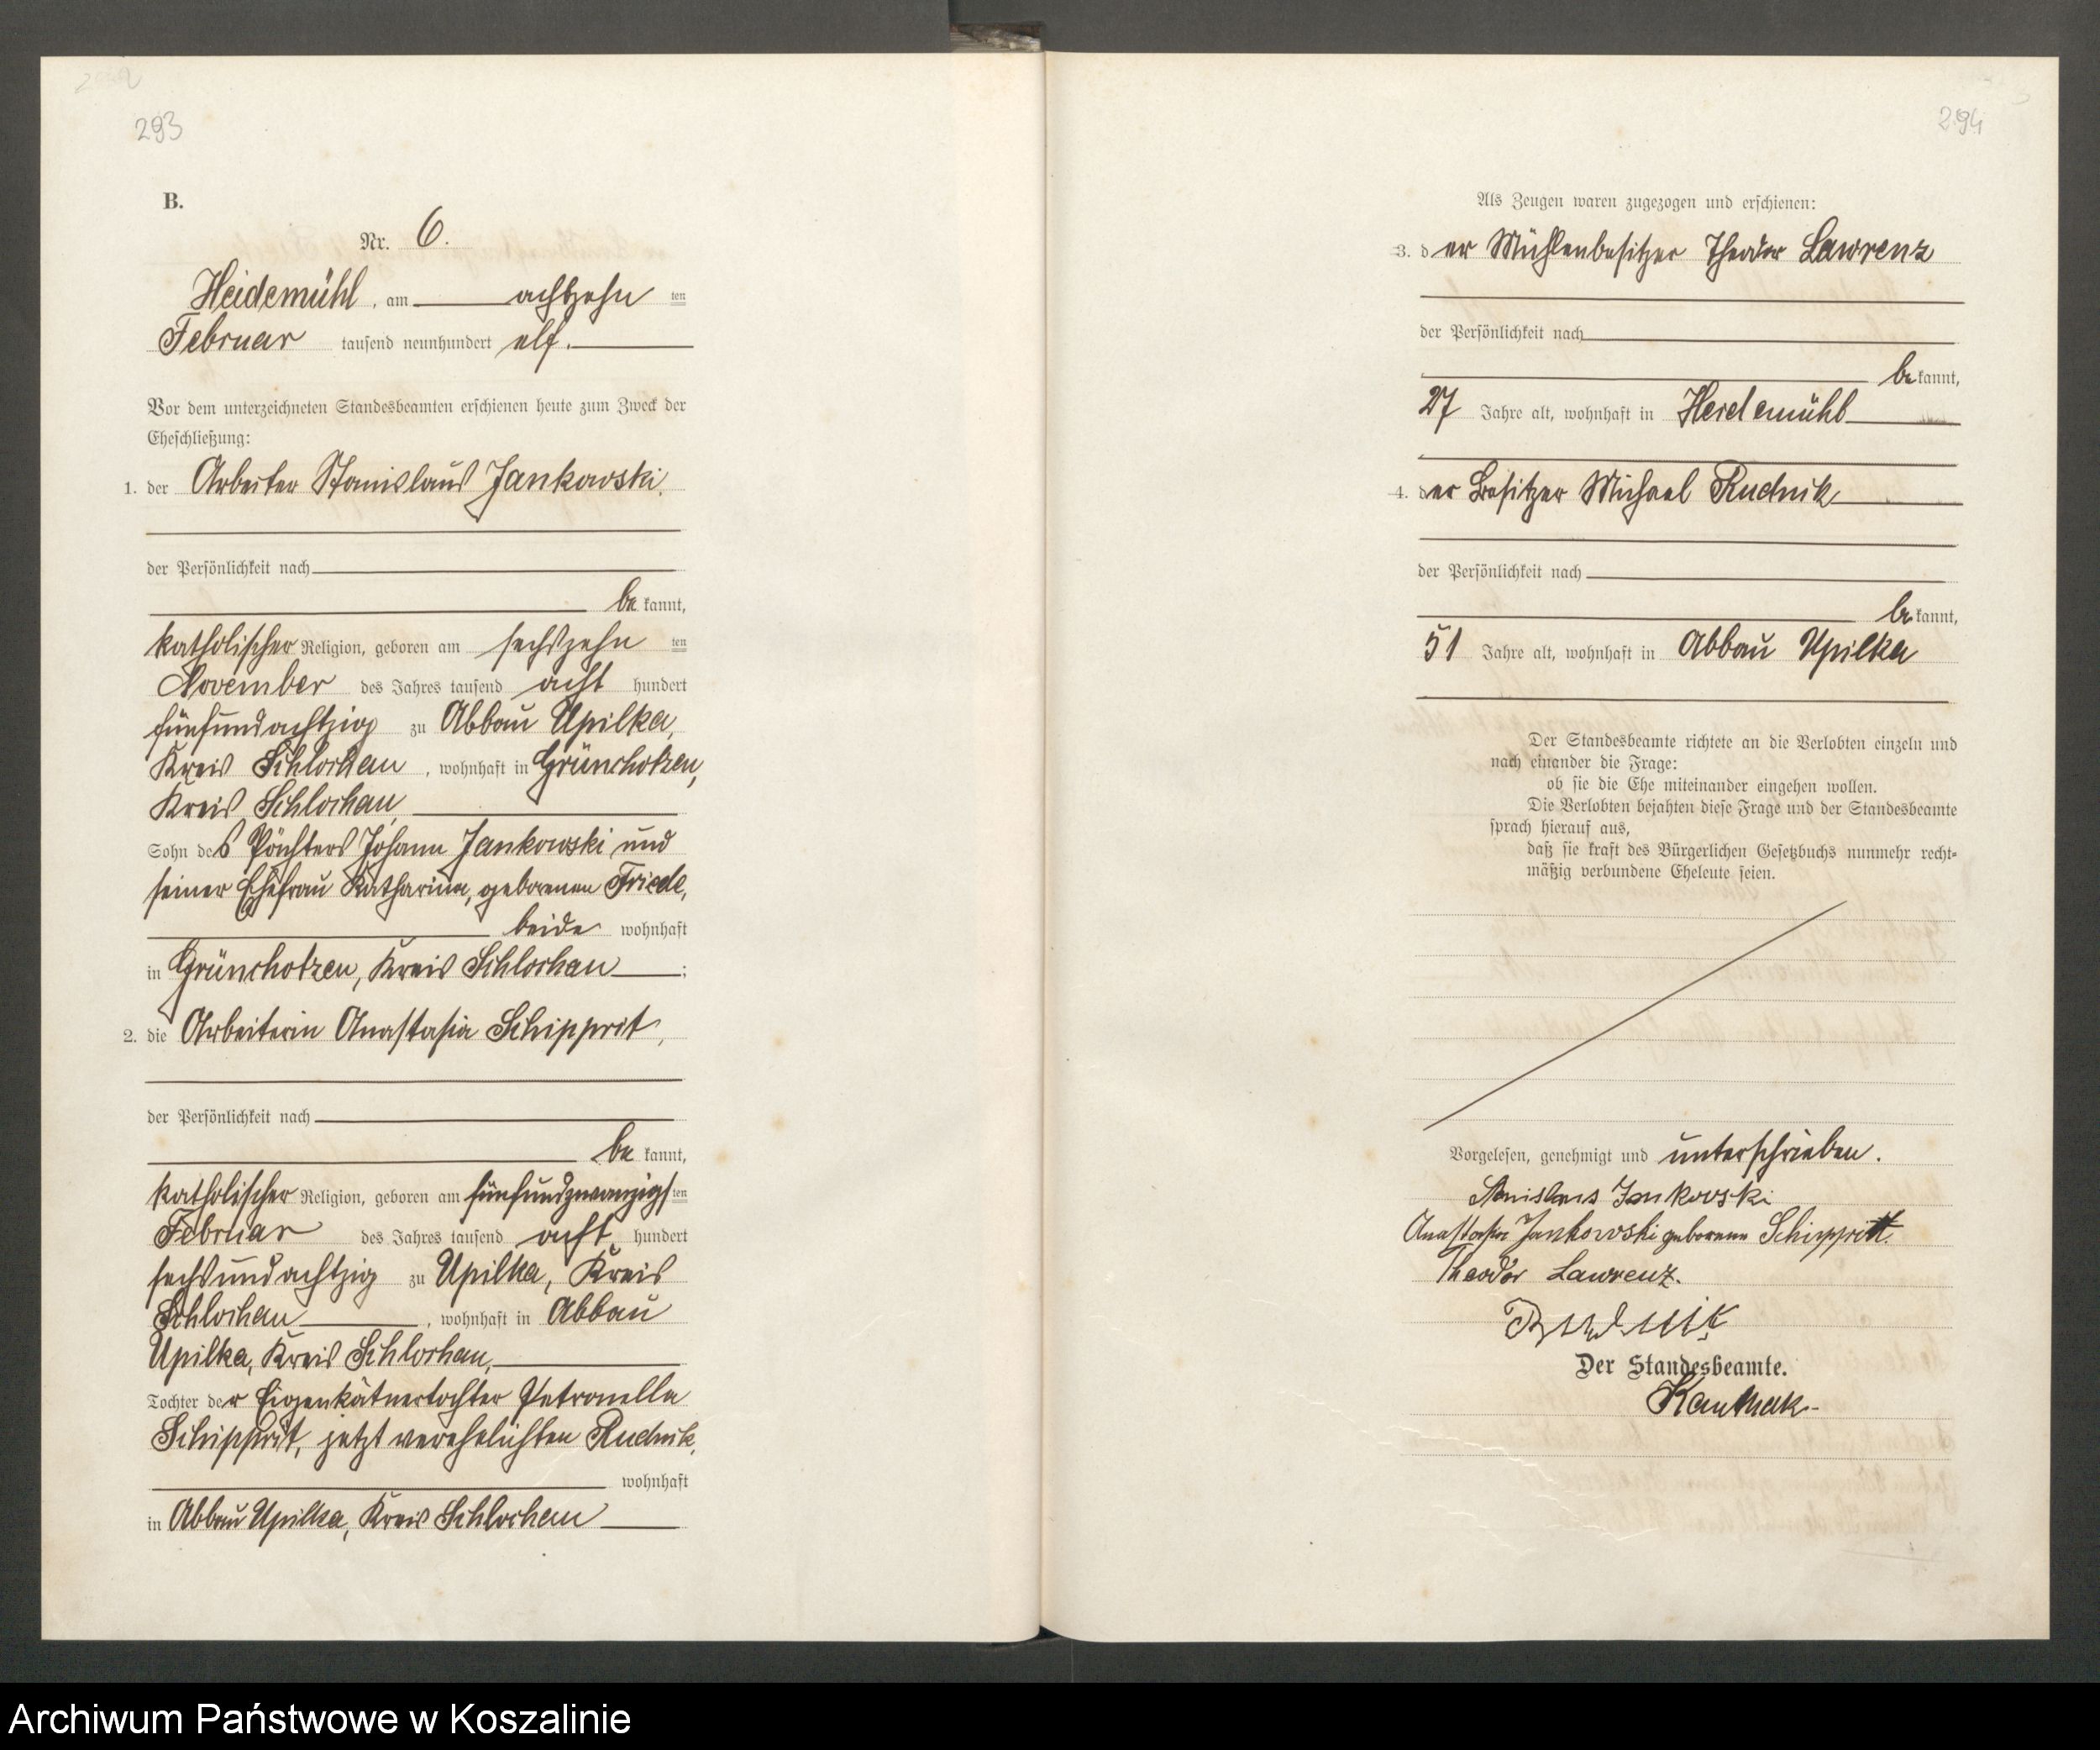 293
B.
Nr. 6.
Heidemühl, am achtzehn ten
Februar tausend neunhundert elf.
Vor dem unterzeichneten Standesbeamten erschienen heute zum Zweck der
Eheschließung:
1. der Arbeiter Stanislaus Jankowski,
der Persönlichkeit nach
be kannt,
katholischer Religion, geboren am sechszehn ten
November des Jahres tausend acht hundert
fünfundachtzig zu Abbau Upilka,
Kreis Schlochau, wohnhaft in Grünchotzen,
Kreis Schlochau,
Sohn des Pächters Johann Jankowski und
seiner Ehefrau Katharina, geborenen Friede,
beide wohnhaft
in Grünchotzen, Kreis Schlochau;
2. die Arbeiterin Anastasia Schipprit,
der Persönlichkeit nach
be kannt,
katholischer Religion, geboren am fünfundzwanzigsten
Februar des Jahres tausend acht hundert
sechsundachtzig zu Upilka, Kreis
Schlochau, wohnhaft in Abbau
Upilka, Kreis Schlochau,
Tochter der Eigenkätnertochter Petronella
Schipprit, jetzt verehelichten Rudnik,
wohnhaft
in Abbau Upilka, Kreis Schlochau
294
Als Zeugen waren zugezogen und erschienen:
3. der Mühlenbesitzer Theodor Lawrenz
der Persönlichkeit nach
be kannt,
27 Jahre alt, wohnhaft in Heidemühl
4. der Besitzer Michael Rudnik
der Persönlichkeit nach
be kannt,
51 Jahre alt, wohnhaft in Abbau Upilka
Der Standesbeamte richtete an die Verlobten einzeln und
nach einander die Frage:
ob sie die Ehe miteinander eingehen wollen.
Die Verlobten bejahten diese Frage und der Standesbeamte
sprach hierauf aus,
daß sie kraft des Bürgerlichen Gesetzbuchs nunmehr recht-
mäßig verbundene Eheleute seien.
Vorgelesen, genehmigt und unterschrieben.
Stanislaus Jankowski
Anastasia Jankowski geborene Schippritt.
Theodor Lawrenz.
Rudnik
Der Standesbeamte.
Kanthak
Archiwum Państwowe w Koszalinie